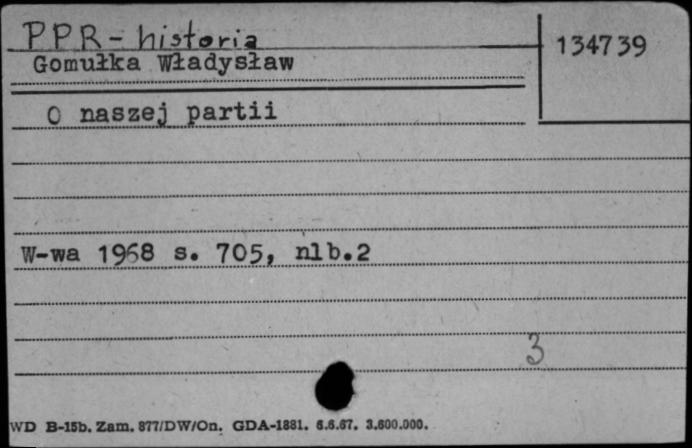 PPR - historia
134739
Gomułka Władysław
O naszej partii
W-wa 1968 s. 705, nlb.2
3
WD B-15b. Zam. 877/DW/On. GDA-1881. 6.6.67. 3.600.000.